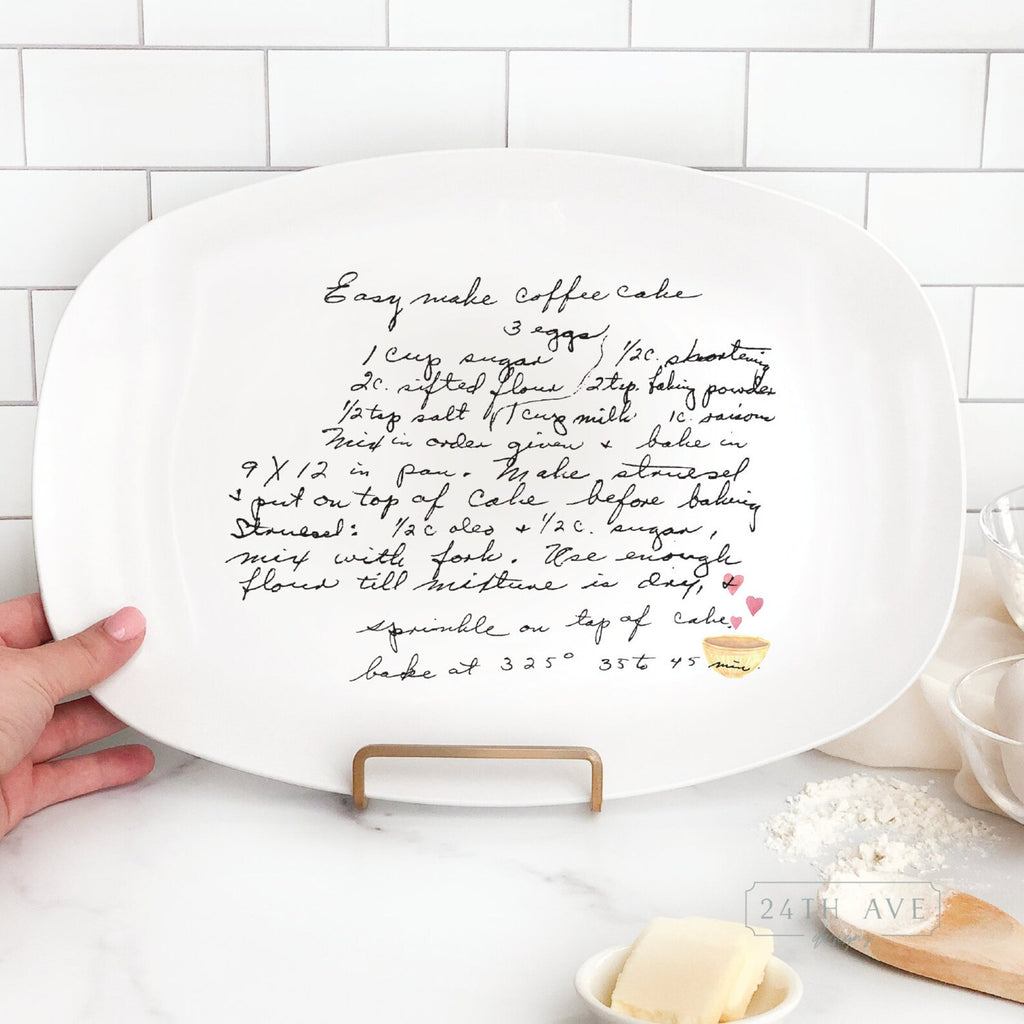 Easy make coffee cake
3 eggs
1 cup sugar 1/2 c. shortening
2 c. sifted flour 2 tsp. baking powder
1/2 tsp salt 1 cup milk 1 c. raisons
Mix in order given & bake in
9 X 12 in pan. Make struesel
& put on top of cake before baking
Struesel: 1/2 c oleo & 1/2 c. sugar,
mix with fork. Use enough
flour till mixture is dry, &
sprinkle on top of cake.
bake at 325° 35 to 45 min.
24TH AVE